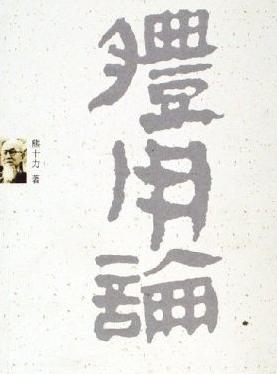 體用論
熊十力 著